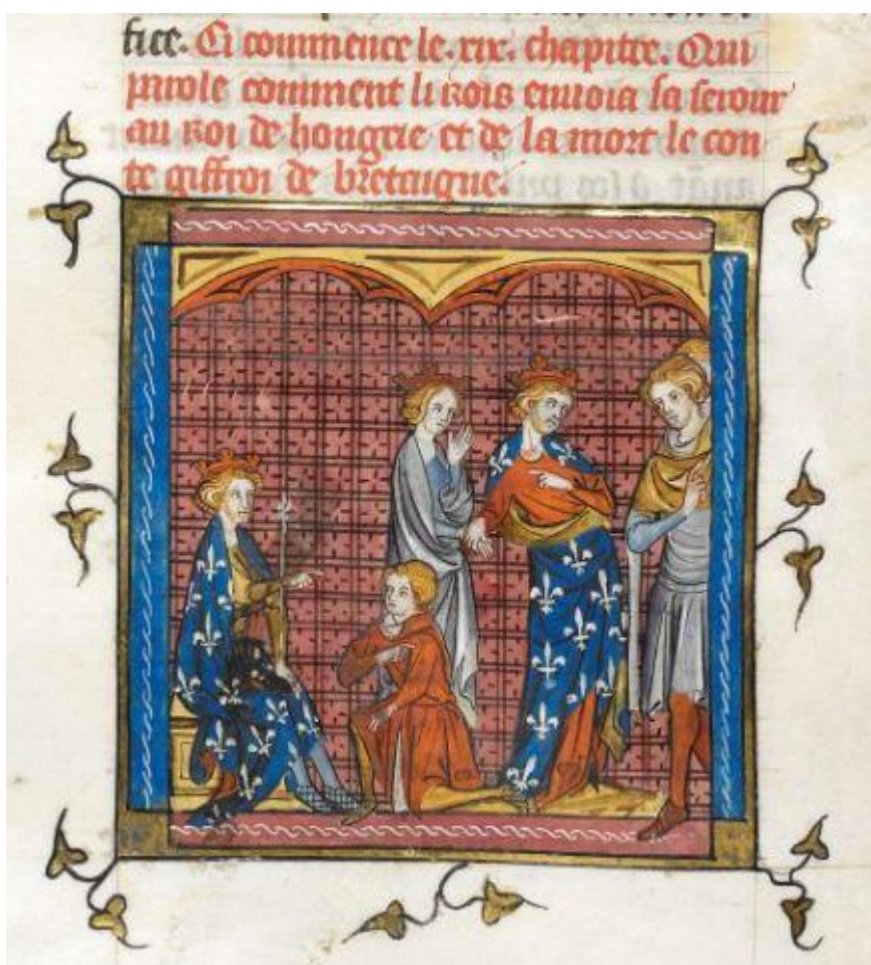 fice. Ci commence le .xix. chapitre. Qui
parole comment li rois enuoia sa serour
au roi de hongrie et de la mort le con
te giffroi de bretaigne.